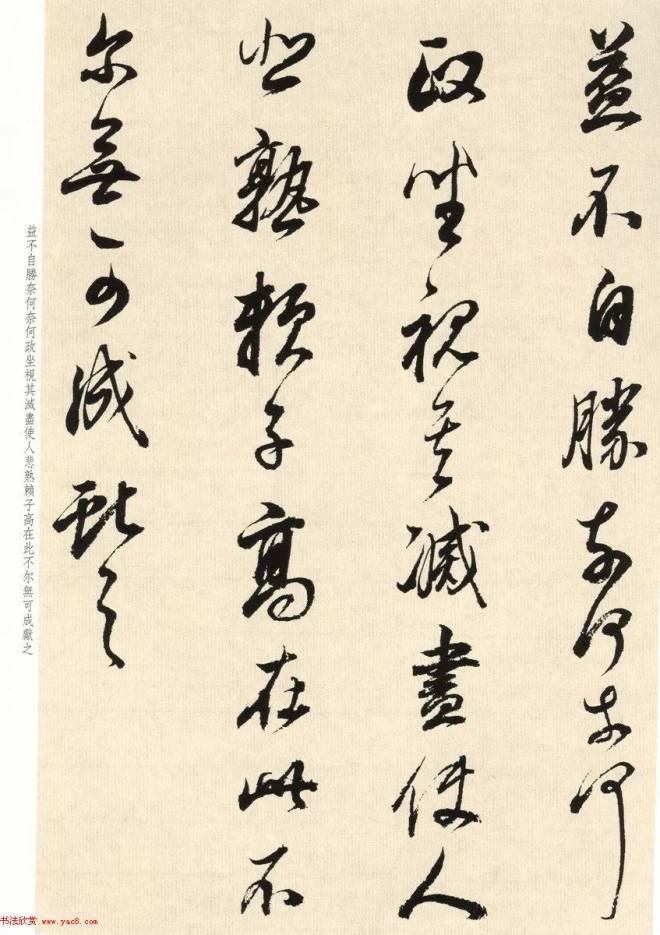 益不自勝奈何奈何
政坐視其滅盡使人
悲熟賴子高在此不
尔無可成獻之
益不自勝奈何奈何政坐視其滅盡使人悲熟賴子高在此不尔無可成獻之
书法欣赏 www.yac8.com